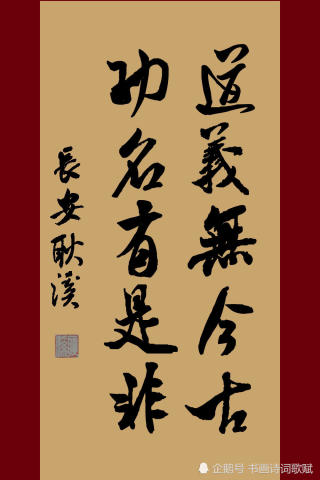 道義無今古
功名有是非
長安耿溪
企鹅号 书画诗词歌赋